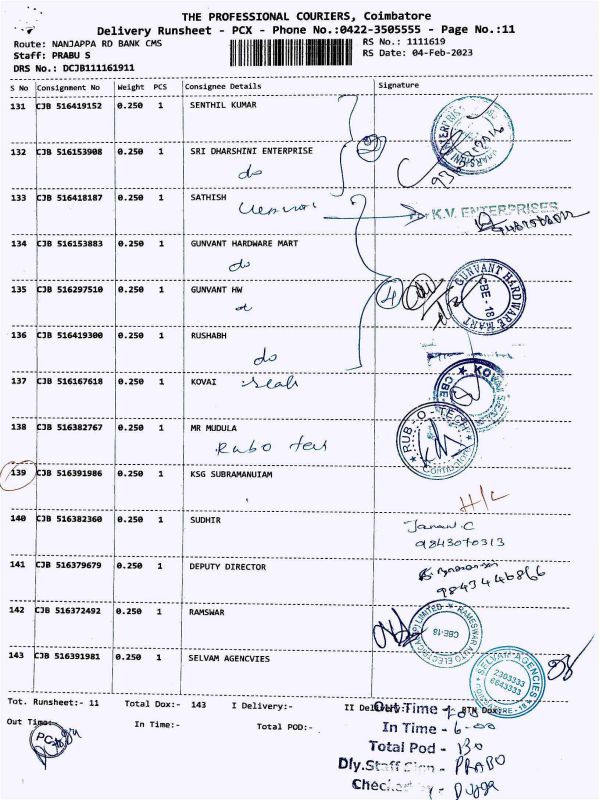 THE PROFESSIONAL COURIERS, Coimbatore
Delivery Runsheet - PCX - Phone No.:0422-3505555 - Page No.:11
Route: NANJAPPA RD BANK CMS
RS No.: 1111619
Staff: PRABU S
RS Date: 04-Feb-2023
DRS No.: DCJB111161911
S No Consignment No Weight PCS Consignee Details Signature
131 CJB 516419152 0.250 1 SENTHIL KUMAR
132 CJB 516153908 0.250 1 SRI DHARSHINI ENTERPRISE
do
133 CJB 516418187 0.250 1 SATHISH
K.V. ENTERPRISES
134 CJB 516153883 0.250 1 GUNVANT HARDWARE MART
do
135 CJB 516297510 0.250 1 GUNVANT HW
4
GUNVANT HARDWARE MART
CBE-18
136 CJB 516419300 0.250 1 RUSHABH
do
137 CJB 516167618 0.250 1 KOVAI
seals
KOVAI
CBE
138 CJB 516382767 0.250 1 MR MUDULA
Rubo
RUB-O-TECH
139 CJB 516391986 0.250 1 KSG SUBRAMANUIAM
H/C
140 CJB 516382360 0.250 1 SUDHIR
9843070313
141 CJB 516379679 0.250 1 DEPUTY DIRECTOR
9843446866
142 CJB 516372492 0.250 1 RAMSWAR
RAMESWAR AUTO ELECTRICAL LIMITED
CBE-18
143 CJB 516391981 0.250 1 SELVAM AGENCVIES
SELVAM AGENCIES
2303333
6643333
Tot. Runsheet:- 11 Total Dox:- 143 I Delivery:- II Delivery:- RTN Dox:
Out Time:
In Time:- Total POD:-
PC
Out Time -
In Time - 6-00
Total Pod - 130
Dly.Staff Sign - PRABO
Checked By -